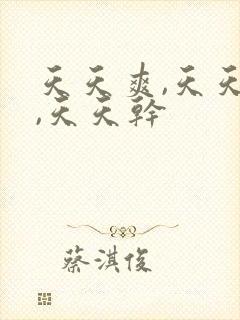 天天爽,天天
,天天幹
蔡淇俊